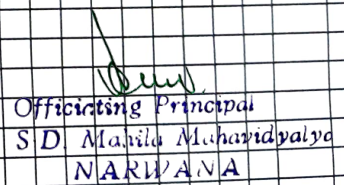 Officiating Principal
S D Mahila Mahavidyalya
NARWANA